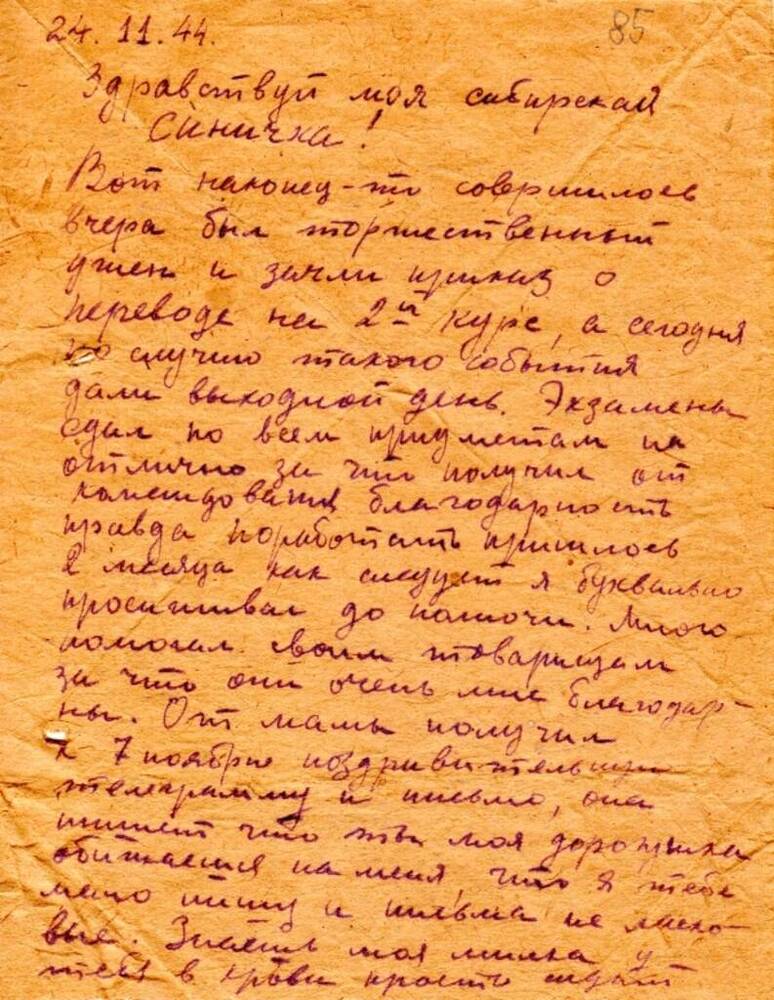 24. 11. 44.
85
Здравствуй моя сибирская
Синичка!
Вот наконец-то совершилось
вчера был торжественный
ужен и зачли приказ о
переводе на 2й курс, а сегодня
по случаю такого события
дали выходной день. Экзамены
сдал по всем предметам на
отлично за что получил от
командования благодарность
правда поработать пришлось
2 месяца как следует я буквально
просиживал до полночи. Много
помогал своим товарищам
за что они очень мне благодар-
ны. От мамы получил
к 7 ноябрю поздравительную
телеграмму и письмо, она
пишет что ты моя дорогушка
обижаешся на меня, что я тебе
мало пишу и письма не ласко-
вые. Знаешь моя милка у
тебя в крови просто сидит